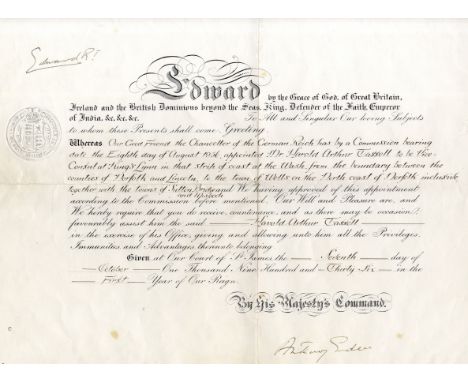 Edward R.I.
Edward by the Grace of God, of Great Britain,
Ireland and the British Dominions beyond the Seas, King, Defender of the Faith, Emperor
of India, &c, &c, &c. To All and Singular Our loving Subjects
to whom these Presents shall come, Greeting
Whereas Our Good Friend the Chancellor of the German Reich has by a Commission bearing
date the Eighth day of August 1936, appointed Mr Harold Arthur to be Vice-
Consul at King's Lynn in that stretch of coast at the Wash, from the boundary between the
counties of Norfolk and Lincoln, to the town of Wells on the North coast of Norfolk inclusive
together with the towns of Sutton Bridge and Wisbech and We having approved of this appointment
according to the Commission before mentioned, Our Will and Pleasure are, and
We hereby require that you do receive, countenance, and as there may be occasion,
favourably assist him the said Harold Arthur
in the exercise of his Office, giving and allowing unto him all the Privileges,
Immunities, and Advantages thereunto belonging
Given at Our Court of St. James the Seventh day of
October One Thousand Nine Hundred and Thirty Six in the
First Year of Our Reign.
By His Majesty's Command.
Anthony Eden